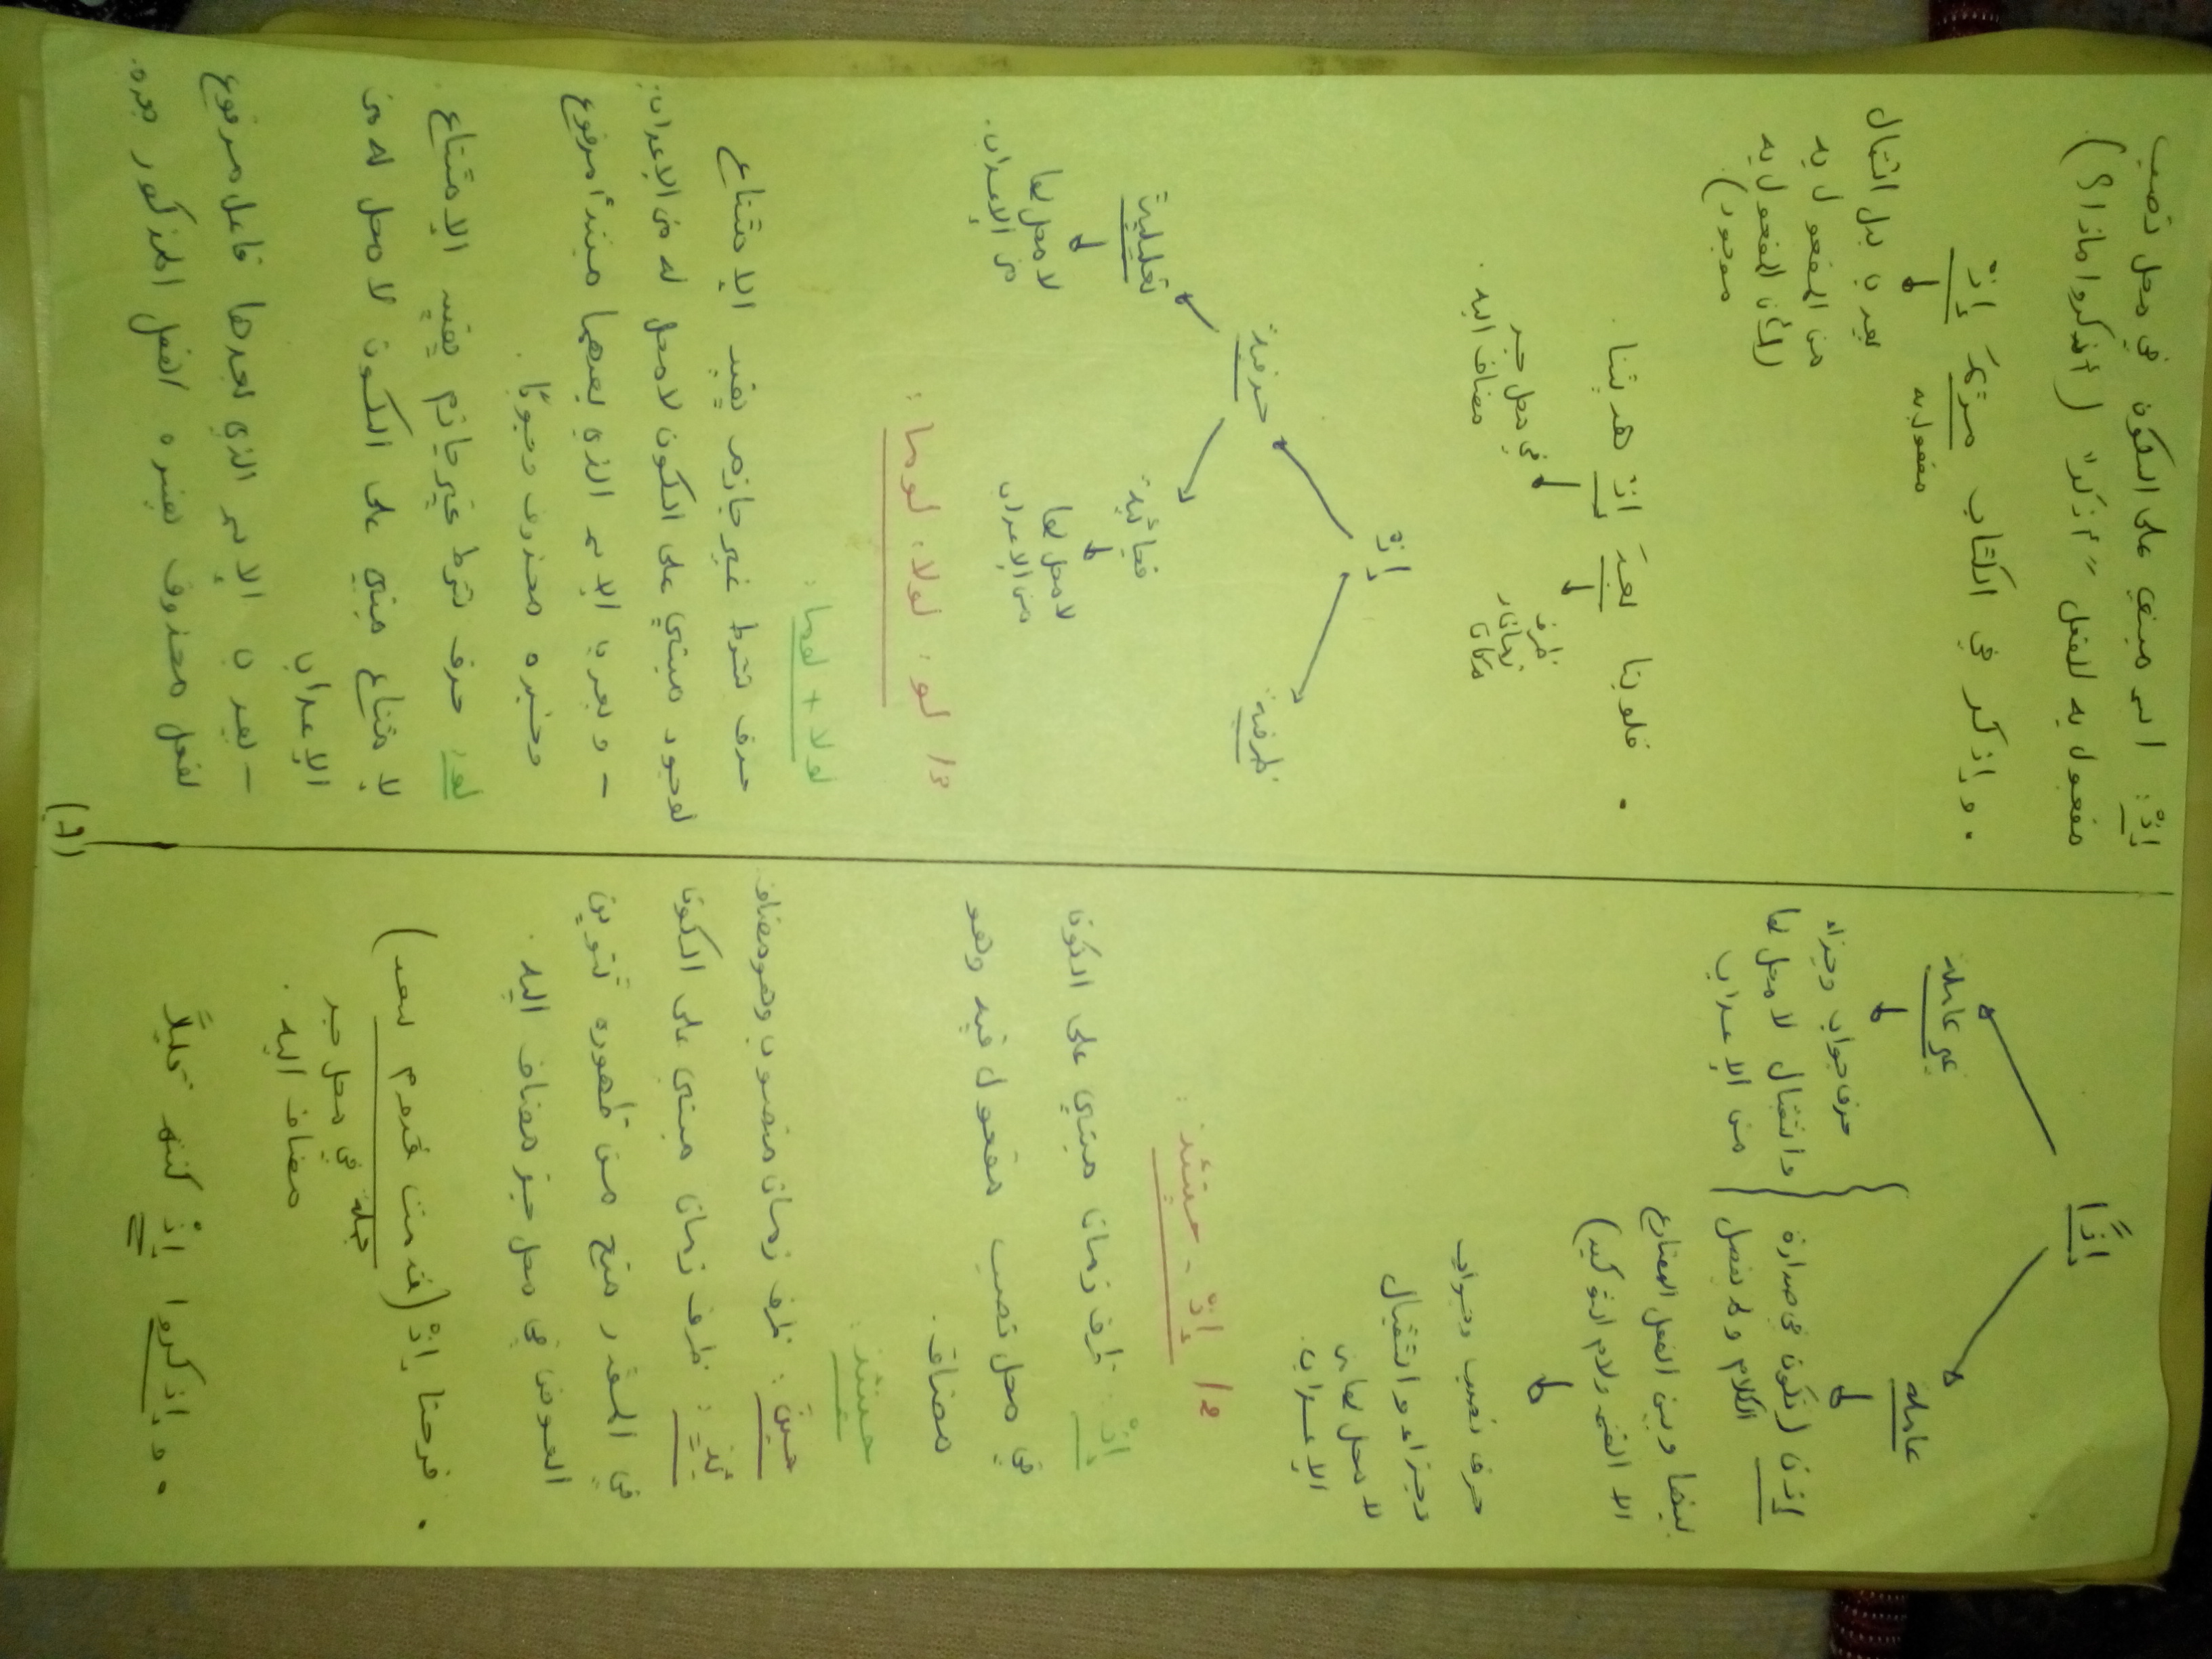 إذًا
عاملة
غير عاملة
إذن (تكون في صدارة
الكلام ولا يفصل
بينها وبين الفعل المضارع
الا القسم ولام التوكيد)
حرف نصب وجواب
وجزاء واستقبال
لا محل لها من
الإعراب.
حرف جواب وجزاء
واستقبال لا محل لها
من الإعراب
2/ إذْ - حينئذ:
إذْ: ظرف زمان مبني على السكون
في محل نصب مفعول فيه وهو
مضاف.
حينئذ:
حينَ: ظرف زمان منصوب وهو مضاف.
ئذٍ: ظرف زمان مبني على السكون
في المقدر منع من ظهوره تنوين
العوض في محل جر مضاف اليه.
• فرحنا إذْ (قدمت قدوم سعد)
جملة في محل جر
مضاف اليه.
• واذكروا إذْ كنتم قليلاً
إذْ: اسم مبني على السكون في محل نصب
مفعول به للفعل "أذكر" (أذكروا ماذا؟)
• واذكر في الكتاب مريمَ إذْ
مفعول به
يعرب بدل اشتمال
من المفعول به
(لأن المفعول به
موجود).
• قلوبنا بعدَ إذْ هديتنا.
ظرف
زمان
مكان
في محل جر
مضاف اليه.
إذْ
ظرفية
حرفية
فجائية
لا محل لها
من الإعراب
تعليلية
لا محل لها
من الإعراب.
3/ لو، لولا، لوما:
لولا + لوما:
حرف شرط غير جازم يفيد الامتناع
لوجود مبني على السكون لا محل له من الاعراب.
- ويعرب الاسم الذي بعدهما مبتدأ مرفوع
وخبره محذوف وجوبًا.
لو: حرف شرط غير جازم يفيد الامتناع
لامتناع مبني على السكون لا محل له من
الإعراب
- يعرب الاسم الذي بعدها فاعل مرفوع
لفعل محذوف يفسره الفعل المذكور بعده.